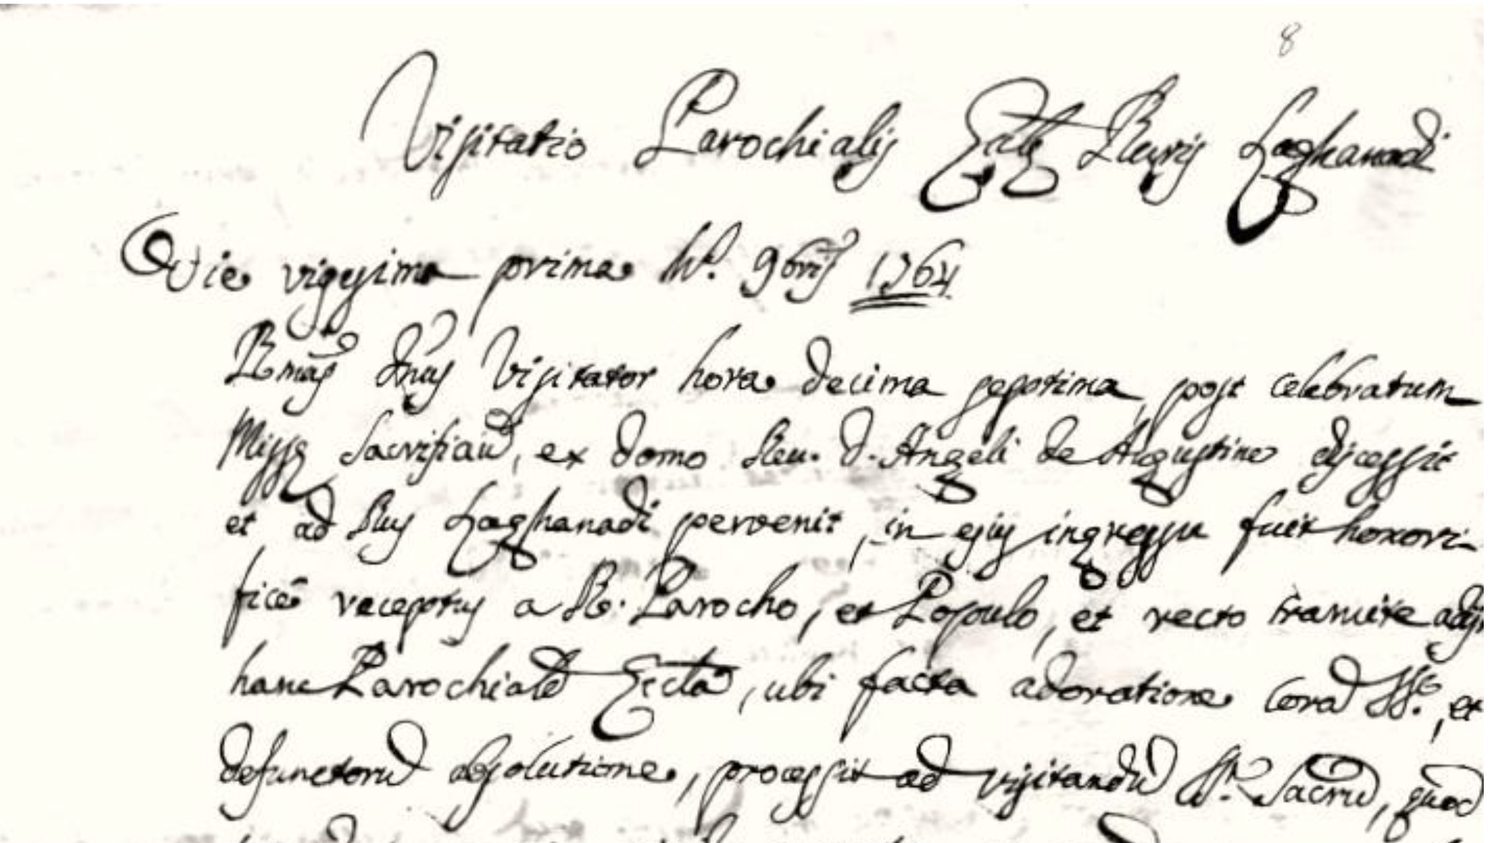 8
Visitatio Parochialis Eccłę Ruris Laghanadi
Die vigesima prima hꝰ. 9bris 1764
Rmus Dnus Visitator hora decima septima, post celebratum
Missę Sacrificiũ, ex domo Reu. d. Angeli de Augustino discessit
et ad Rus Laghanadi pervenit, in ejus ingressu fuit honori-
ficè receptus a R. Parocho, et Populo, et recto tramite
hanc Parochialẽ Ecclã, ubi facta adoratione corã SS., et
defunctorũ absolutione, processit ad visitandũ SS. Sacrũ, quod